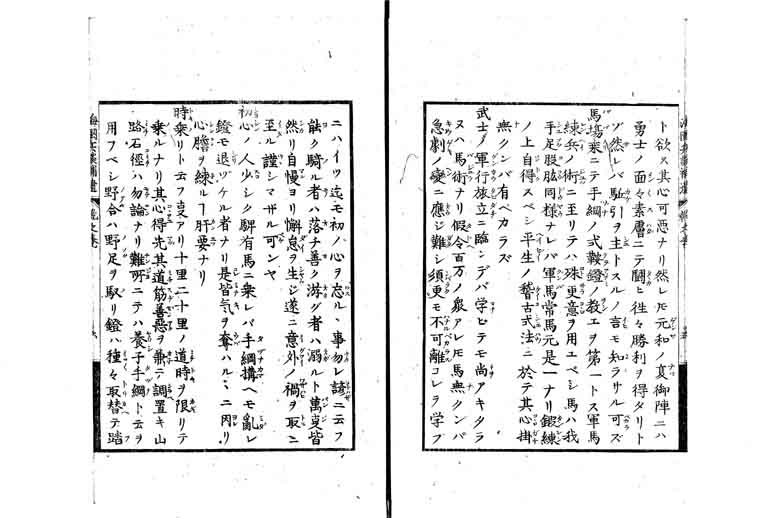 ト欲ス其心可悪ナリ然レ𪜈元和ノ夏御陣ニハ
勇士ノ面々素膚ニテ闘ヒ往々勝利ヲ得タリト
ゾ然レバ駈引ヲ主トスルノ言モ知ラサル可ズ
馬場乗ニテ手綱ノ弍鞍鐙ノ教エヲ第一トス軍馬
練兵ノ術ニ至リテハ殊更意ヲ用エベシ馬ハ我
手足股肱同様ナレバ軍馬常馬元是一ナリ鍜練
ノ上自得スベシ平生ノ稽古式法ニ於テ其心掛
無クンバ有ベカラズ
武士ノ軍行旅立ニ臨ンデバ学ヒテモ尚アキタラ
ヌハ馬術ナリ假令百万ノ衆アレ𪜈馬無クンバ
急劇ノ變ニ應ジ難シ須更モ不可離コレヲ学ブ
ニハイツ迄モ初ノ心ヲ忘ルヽ事勿レ諺ニ云フ
能ク騎ル者ハ落チ善ク游グ者ハ溺ルト萬叓皆
然リ自慢ヨリ懈怠ヲ生ジ遂ニ意外ノ禍ヲ取ニ
至ル謹シマザル可ンヤ
初心ノ人少シク驛有馬ニ乗レバ手綱搆ヘモ亂レ
鐙モ退ヅケル者ナリ是皆気ヲ奪ハルヽニ因リ
心膽ヲ練ルヿ肝要ナリ
時乗リト云フ叓アリ十里二十里ノ道時ヲ限リテ
乗ルナリ其心得先其道筋善惡ヲ兼テ調置キ山
路石徑ハ勿論ナリ難所ニテハ養子手綱ト云ヲ
用フベシ野合ハ野足ヲ馭リ鐙ハ種々取替テ踏